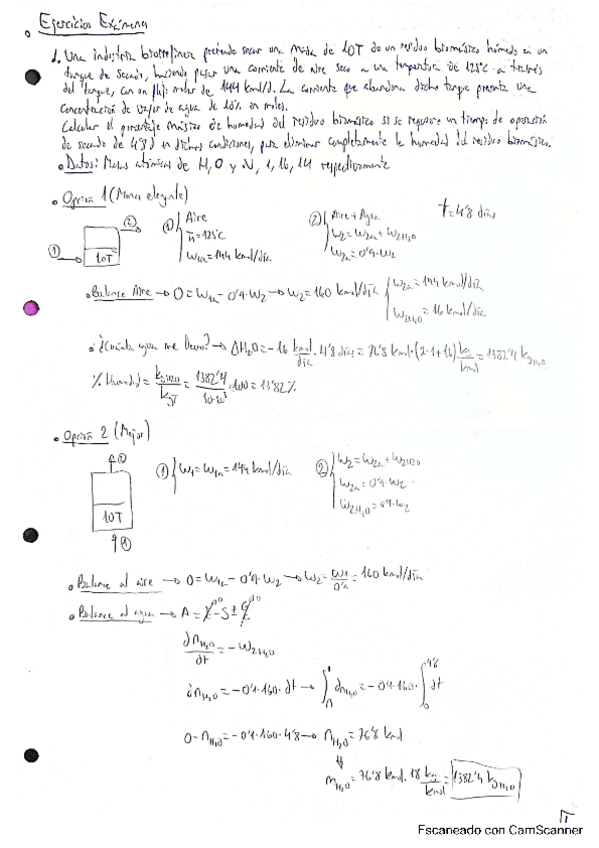 Ejercicios Exámenes
1. Una industria biorrefinera pretende secar una masa de 10T de un residuo biomásico húmedo en un
tanque de secado, haciendo pasar una corriente de aire seco a una temperatura de 125ºC a través
del tanque, con un flujo molar de 144 kmol/d. La corriente que abandona dicho tanque presenta una
concentración de vapor de agua de 10% en moles.
Calcular el porcentaje másico de humedad del residuo biomásico si se requiere un tiempo de operación
de secado de 4'8 d en dichas condiciones, para eliminar completamente la humedad del residuo biomásico.
Datos: Masas atómicas de H, O y N, 1, 16, 14 respectivamente
Opción 1 (Menos elegante)
t = 4'8 días
② ① 10T
① Aire
T1 = 125ºC
W1a = 144 kmol/día
② Aire + Agua
W2 = W2a + W2H2O
W2a = 0'9·W2
Balance Aire → 0 = W1a - 0'9·W2 → W2 = 160 kmol/día
W2a = 144 kmol/día
W2H2O = 16 kmol/día
¿Cuánta agua me llevo? → ΔH2O = -16 kmol/día · 4'8 días = 76'8 kmol · (2·1+16) kg/kmol = 1382'4 kg H2O
% Humedad = kg H2O / kg T = 1382'4 / 10·10³ · 100 = 13'82 %
Opción 2 (Mejor)
② 10T ①
① W1 = W1a = 144 kmol/día
② W2 = W2a + W2H2O
W2a = 0'9·W2
W2H2O = 0'1·W2
Balance al aire → 0 = W1a - 0'9·W2 → W2 = W1/0'9 = 160 kmol/día
Balance al agua → A = E - S ± G
dnH2O/dt = -W2H2O
dnH2O = -0'1·160·dt → ∫ dnH2O = -0'1·160·∫ dt
0 - nH2O = -0'1·160·4'8 → nH2O = 76'8 kmol
mH2O = 76'8 kmol · 18 kg/kmol = 1382'4 kg H2O
Escaneado con CamScanner